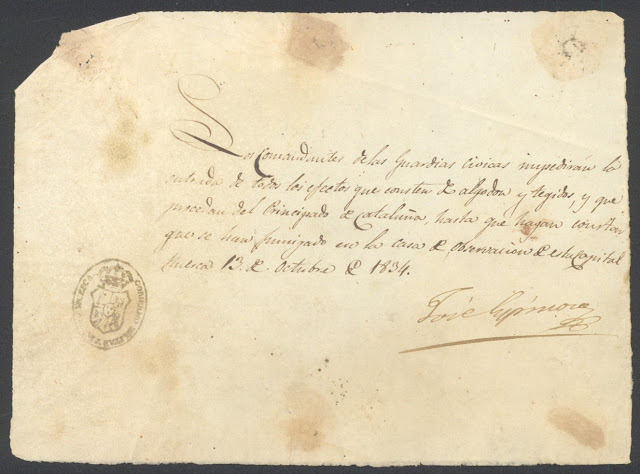 Los Comandantes de las Guardias Civicas impediràn la
entrada de todos los efectos que consten de algodon y tegidos, y que
procedan del Principado de Cataluña, hasta que hagan constar
que se han fumigado en la casa de observacion de esta Capital
Huesca 13. de Octubre de 1834.
José